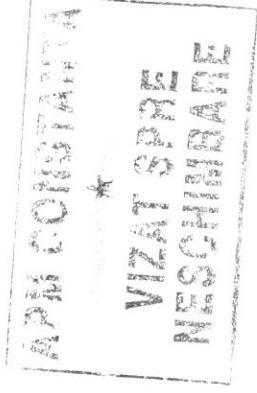 APM CONSTANȚA
VIZAT SPRE
NESCHIMBARE